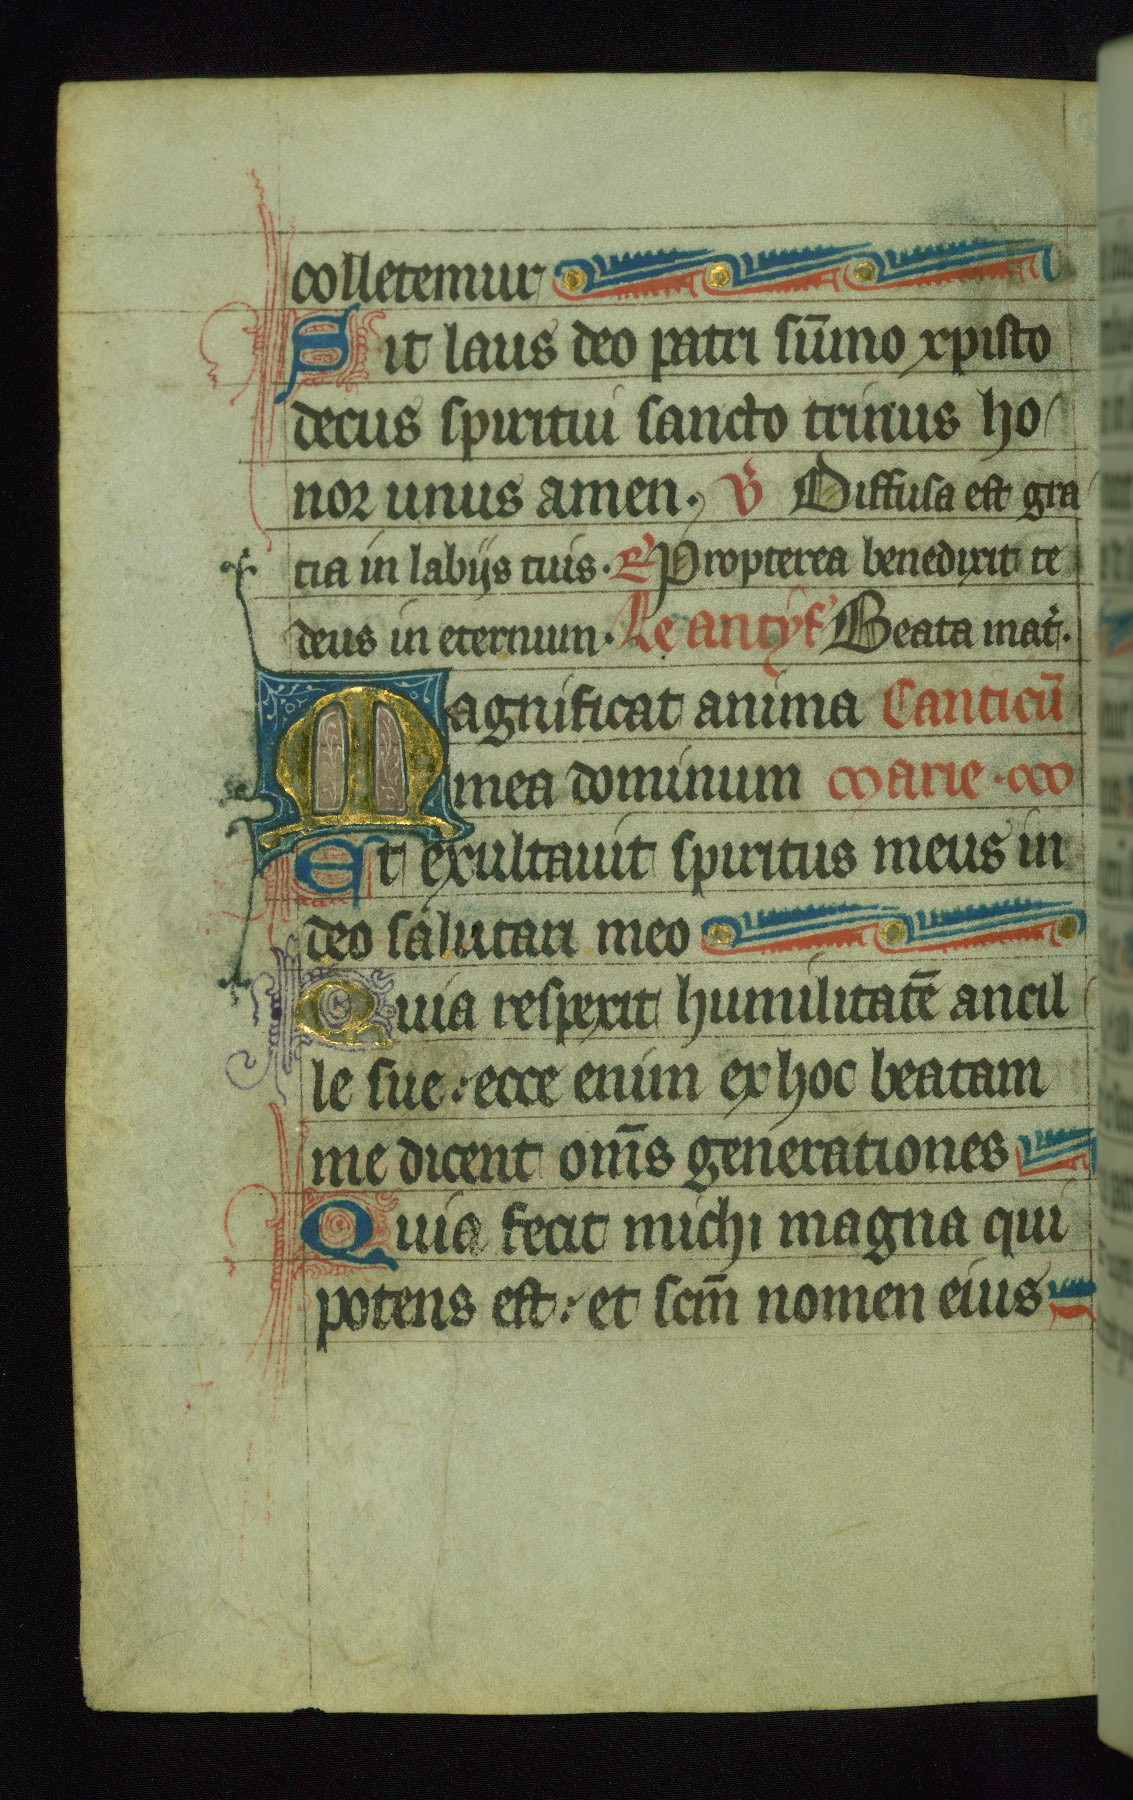 colletemur
Sit laus deo patri sūmo xpisto
decus spiritui sancto trinus ho
nor unus amen. ℣ Diffusa est gra
tia in labijs tuis. Propterea benedixit te
deus in eternum. Le antyf Beata mat̄.
Magnificat anima Canticū
mea dominum marie.
Et exultavit spiritus meus in
deo salutari meo
Quia respexit humilitatē ancil
le sue: ecce enim ex hoc beatam
me dicent om̄s generationes
Quia fecit michi magna qui
potens est: et scm̄ nomen eius